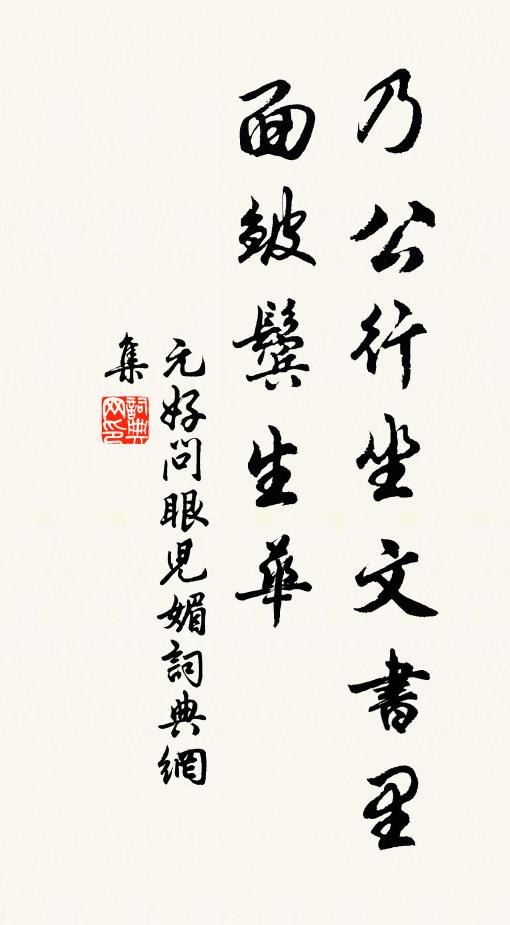 乃公行坐文書里
面皺鬢生華
元好問眼兒媚詞典網
集
詞典
网印